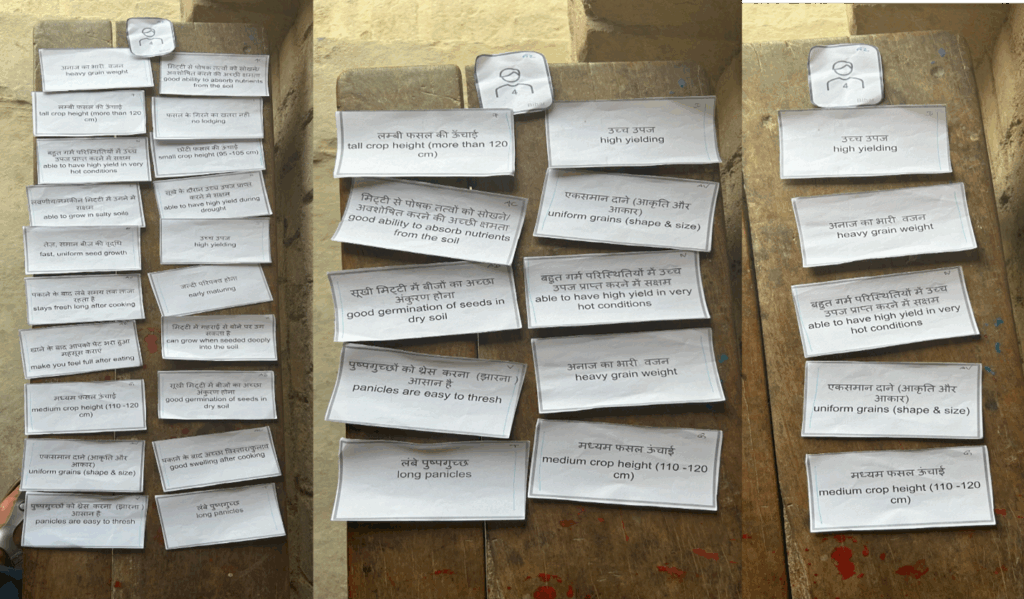 अनाज का भारी वजन
heavy grain weight
मिट्टी से पोषक तत्वों को सोखने/
अवशोषित करने की अच्छी क्षमता
good ability to absorb nutrients
from the soil
लम्बी फसल की ऊंचाई
tall crop height (more than 120
cm)
फसल के गिरने का खतरा नहीं
no lodging
बहुत गर्म परिस्थितियों में उच्च
उपज प्राप्त करने में सक्षम
able to have high yield in very
hot conditions
छोटी फसल की ऊंचाई
small crop height (95 -105 cm)
मिट्टी में उगने में
सक्षम
able to grow in salty soils
सूखे के दौरान उच्च उपज प्राप्त
करने में सक्षम
able to have high yield during
drought
तेज, समान बीज की वृद्धि
fast, uniform seed growth
उच्च उपज
high yielding
पकाने के बाद लंबे समय तक ताजा
रहता है
stays fresh long after cooking
जल्दी परिपक्व होना
early maturing
खाने के बाद आपको पेट भरा हुआ
महसूस कराए
make you feel full after eating
मिट्टी में गहराई से बोने पर उग
सकता है
can grow when seeded deeply
into the soil
मध्यम फसल ऊंचाई
medium crop height (110 -120
cm)
सूखी मिट्टी में बीजों का अच्छा
अंकुरण होना
good germination of seeds in
dry soil
एकसमान दाने (आकृति और
आकार)
uniform grains (shape & size)
पकाने के बाद अच्छा
good swelling after cooking
पुष्पगुच्छों को थ्रेस करना (झारना)
आसान है
panicles are easy to thresh
लंबे पुष्पगुच्छ
long panicles
4
लम्बी फसल की ऊंचाई
tall crop height (more than 120
cm)
उच्च उपज
high yielding
मिट्टी से पोषक तत्वों को सोखने/
अवशोषित करने की अच्छी क्षमता
good ability to absorb nutrients
from the soil
एकसमान दाने (आकृति और
आकार)
uniform grains (shape & size)
सूखी मिट्टी में बीजों का अच्छा
अंकुरण होना
good germination of seeds in
dry soil
बहुत गर्म परिस्थितियों में उच्च
उपज प्राप्त करने में सक्षम
able to have high yield in very
hot conditions
पुष्पगुच्छों को थ्रेस करना (झारना)
आसान है
panicles are easy to thresh
अनाज का भारी वजन
heavy grain weight
लंबे पुष्पगुच्छ
long panicles
मध्यम फसल ऊंचाई
medium crop height (110 -120
cm)
4
उच्च उपज
high yielding
अनाज का भारी वजन
heavy grain weight
बहुत गर्म परिस्थितियों में उच्च
उपज प्राप्त करने में सक्षम
able to have high yield in very
hot conditions
एकसमान दाने (आकृति और
आकार)
uniform grains (shape & size)
मध्यम फसल ऊंचाई
medium crop height (110 -120
cm)